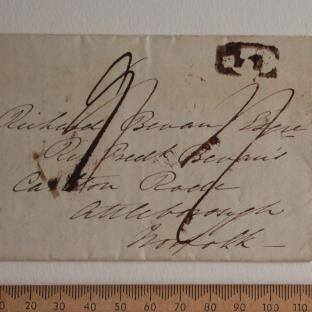 Richard Bevan Esqre
Revd Fredk Bevan's
Carleton Rode
Attleborough
Norfolk
10 20 30 40 50 60 70 80 90 100 110